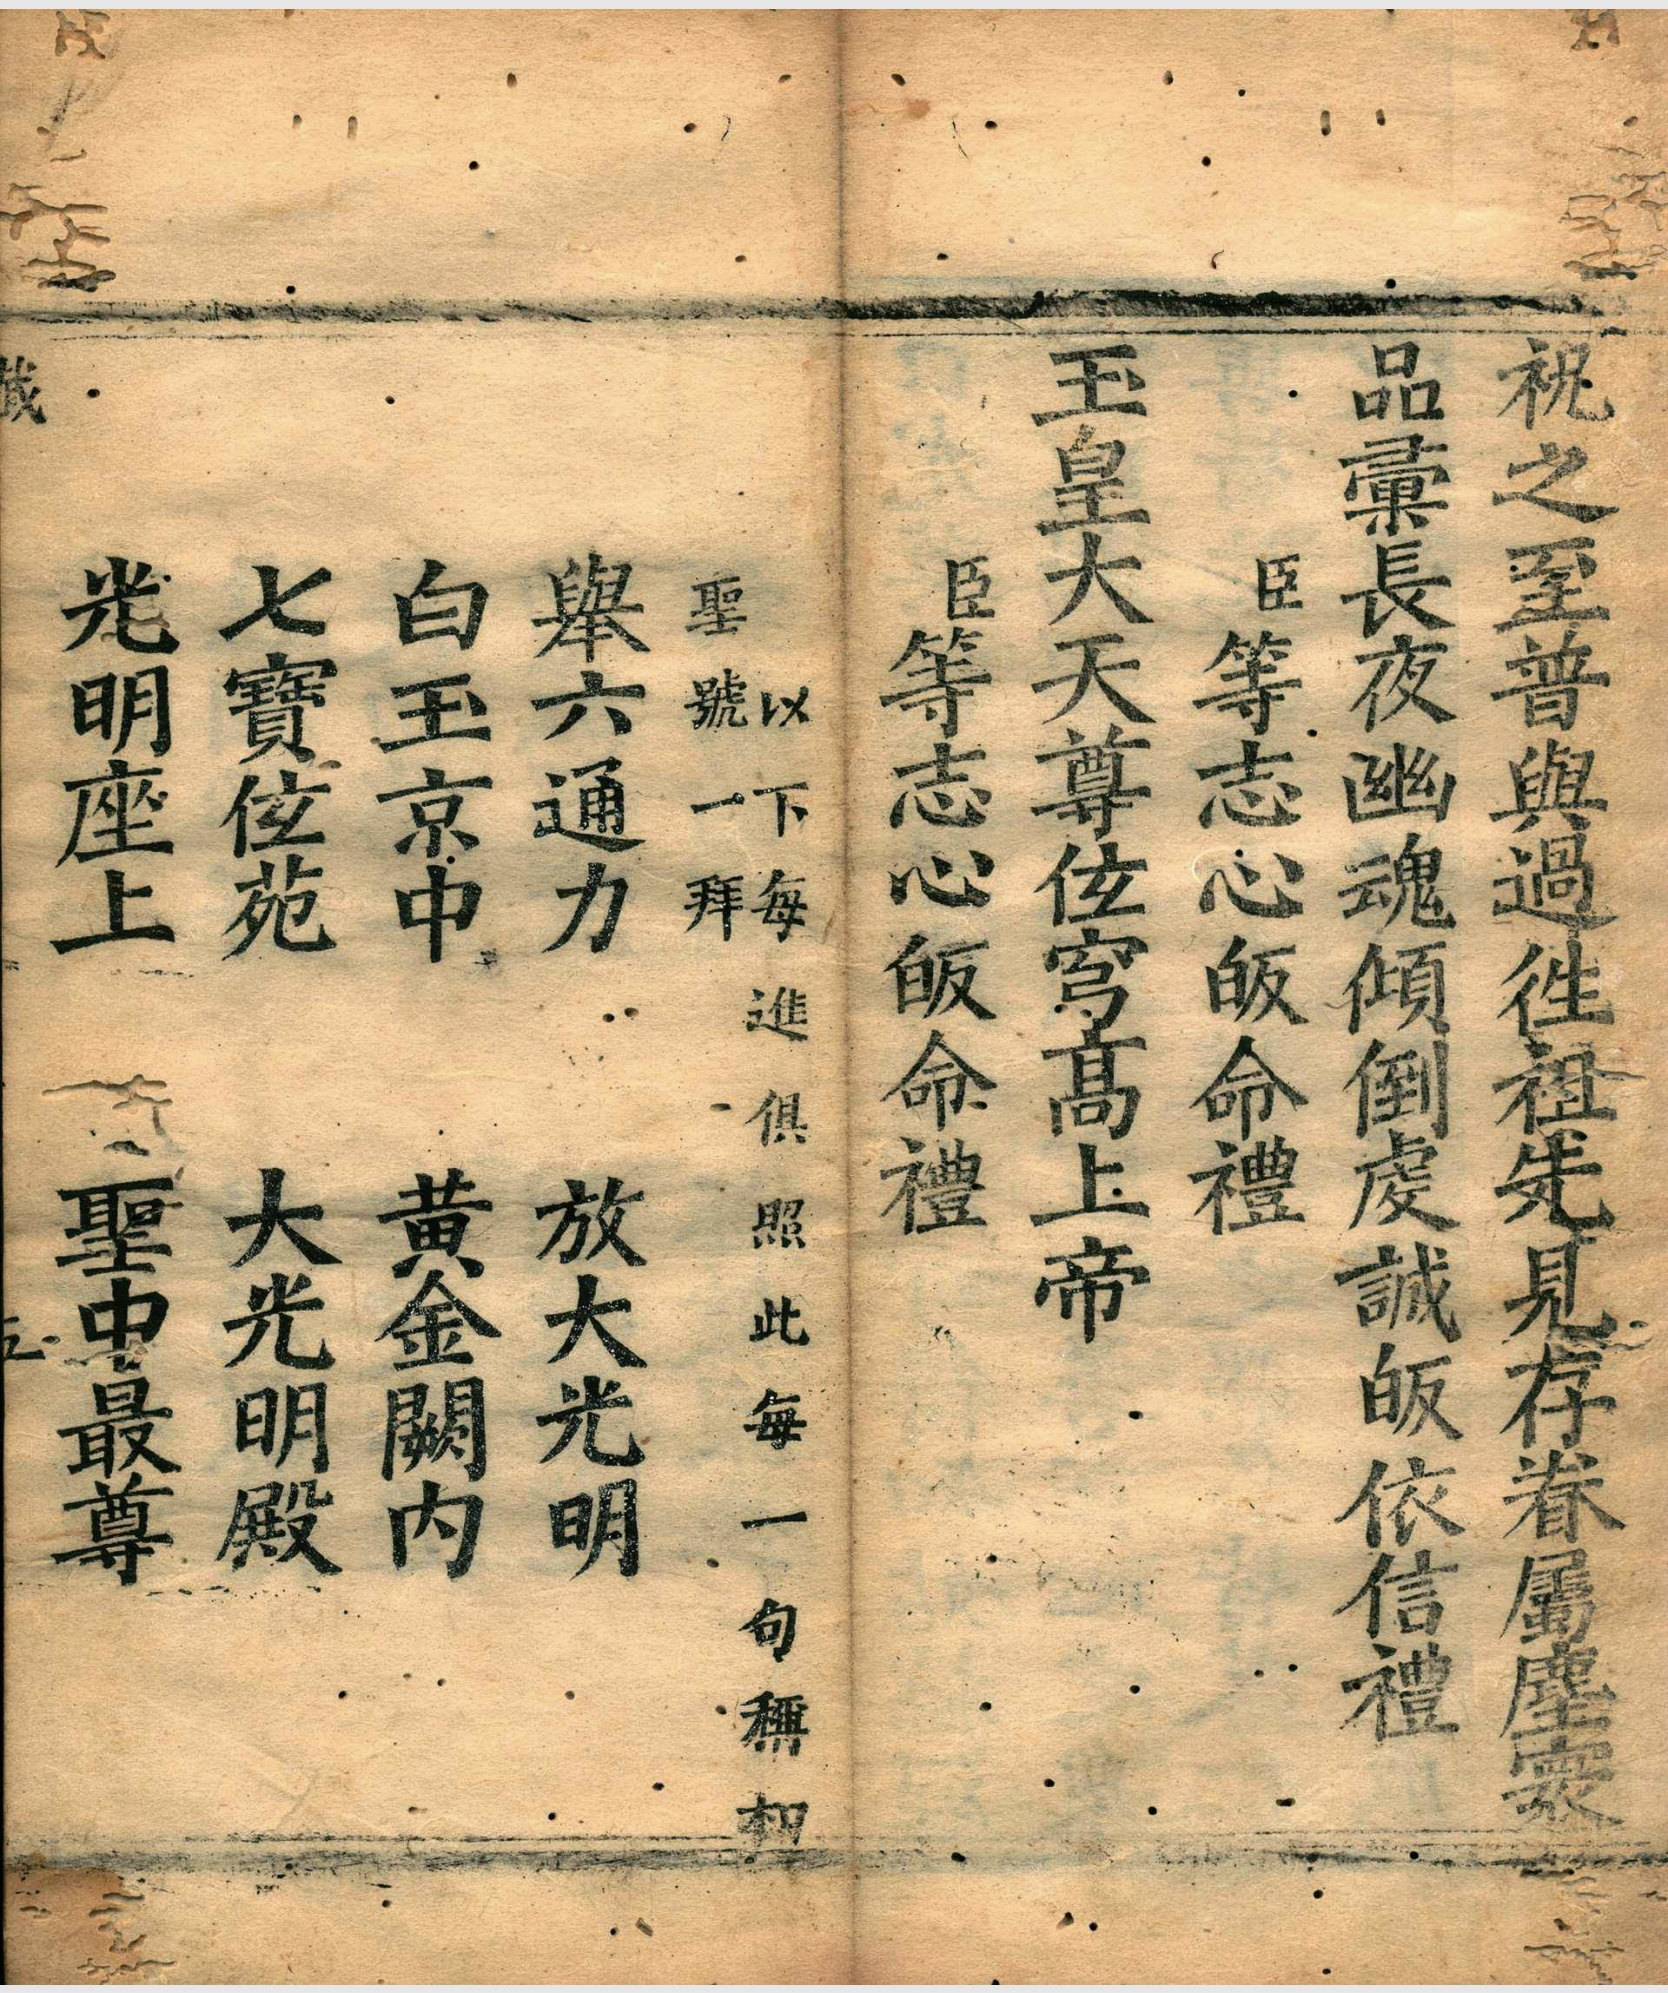 祝之至普與過徃祖先見存眷屬塵寰
品彙長夜幽魂傾倒虔誠皈依信禮
臣等志心皈命禮
玉皇大天尊𢇁穹高上帝
臣等志心皈命禮
以下每進俱照此每一句稱扣
聖號一拜
舉六通力 放大光明
白玉京中 黃金闕內
七寶𢇁苑 大光明殿
光明座上 聖中最尊
五